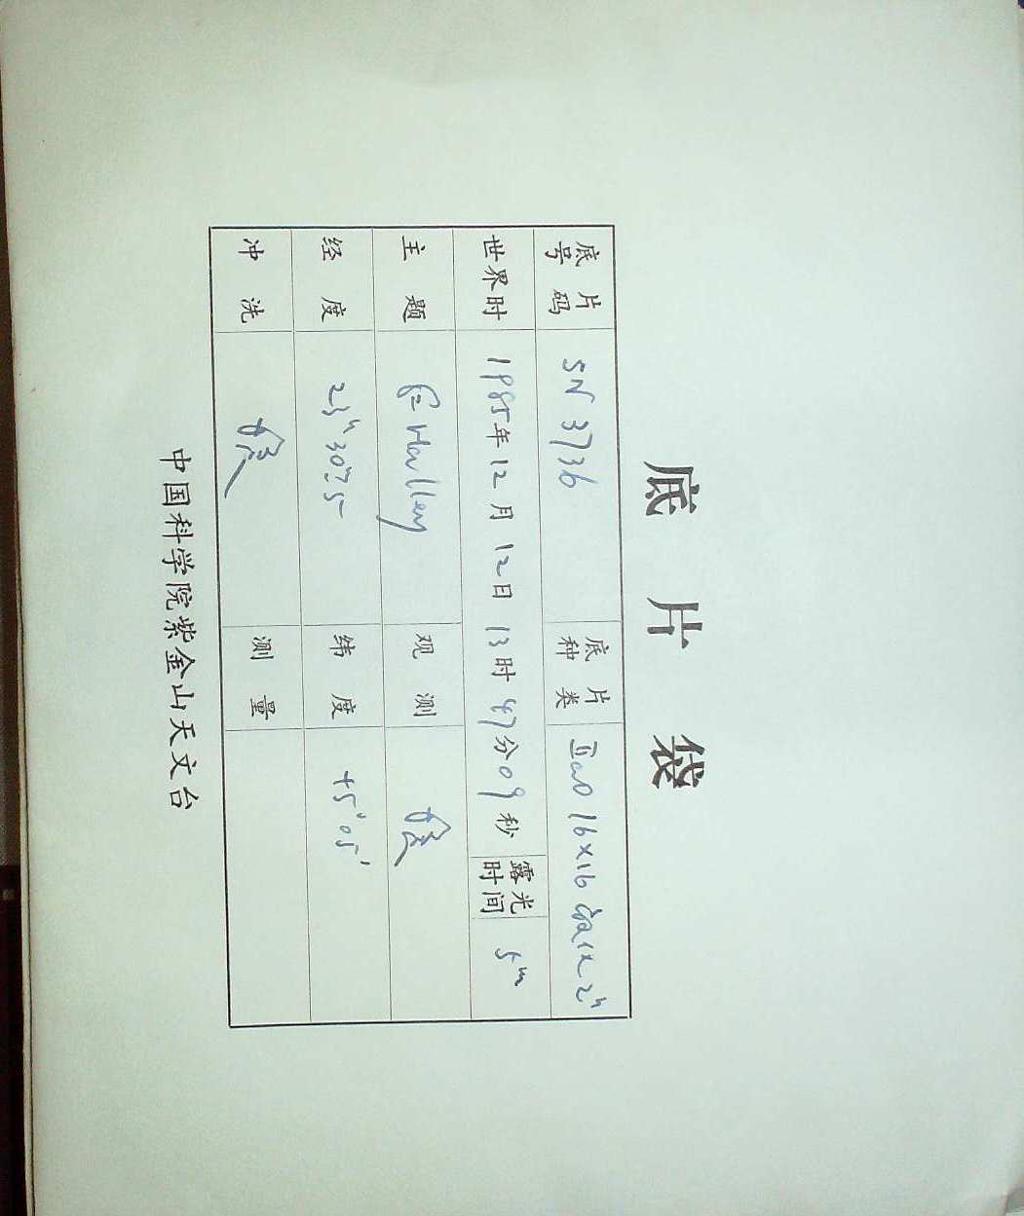 底 片 袋
底片号码 SN 3736 底片种类 IIaO 16×16
世界时 1985年12月12日 13时47分09秒 露光时间 5ᵐ
主 题 P/Halley 观 测
经 度 23ʰ30ᵐ.5 纬 度 +5°05′
冲 洗 测 量
中国科学院紫金山天文台